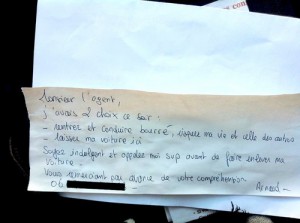 Monsieur l'agent,
j'avais 2 choix ce soir :
- rentrer et conduire bourré, risquer ma vie et celle des autres
- laisser ma voiture ici
Soyez indulgent et appelez moi svp avant de faire enlever ma
voiture.
Vous remerciant par avance de votre compréhension
06 Arnaud